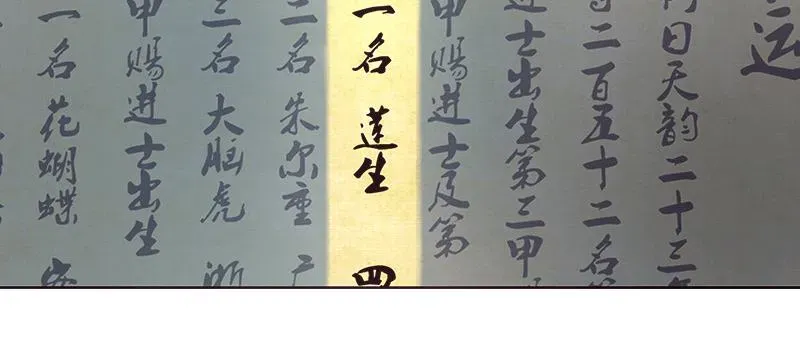 远
日天韵二十三年
二百五十二名
进士出生第三甲
甲赐进士及第
一名 莲生 四
二名 朱尔重 广
三名 大脑虎 浙
甲赐进士出生
一名 花蝴蝶 安